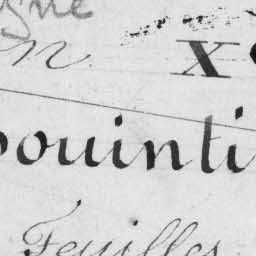 gne
n X
ouinti
Feuilles